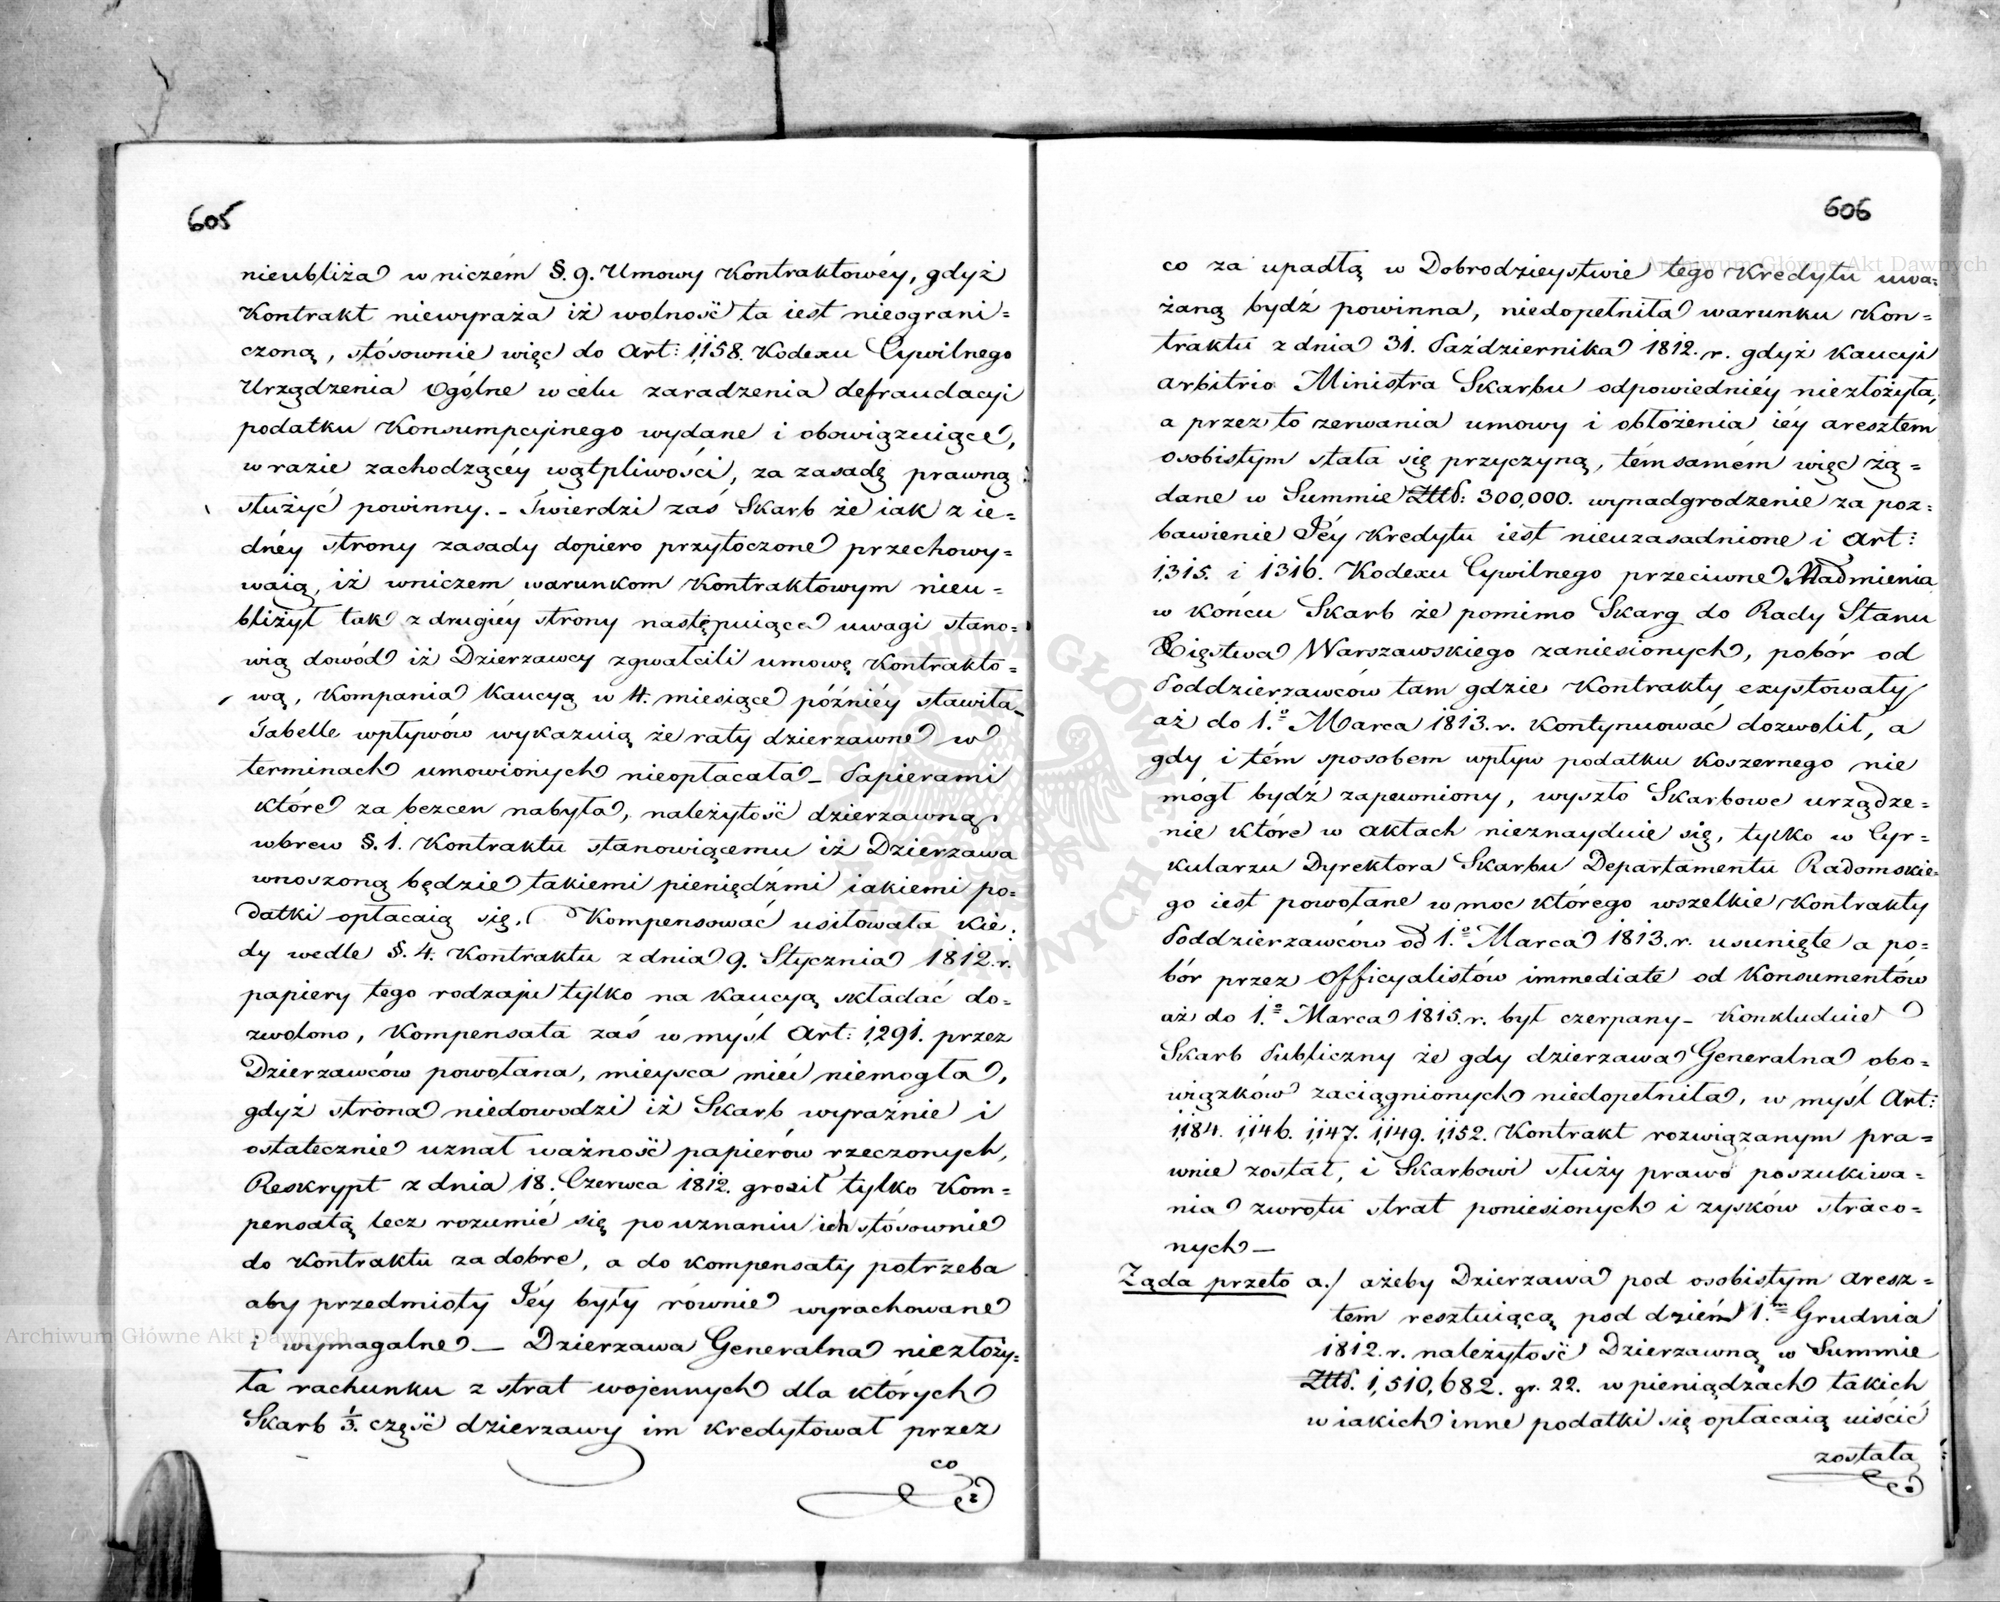 605
nieubliża w niczém §. 9. Umowy Kontraktowéy, gdyż
Kontrakt niewyraża iż wolność ta iest nieograni=
czoną, stósownie więc do Art: 1,158. Kodexu Cywilnego
Urządzenia Ogólne w celu zaradzenia defraudacyi
podatku Konsumpcyjnego wydane i obowiązuiące,
w razie zachodzącéy wątpliwości, za zasadę prawną
służyć powinny. - Twierdzi zaś Skarb że iak z ie=
dnéy strony zasady dopiero przytoczone przechowy=
waią, iż wniczem warunkom Kontraktowym nieu=
bliżył tak z drugiéy strony następuiące uwagi stano=
wią dowód iż Dzierzawcy zgwałcili umowę Kontrakto=
wą, Kompania Kaucyą w 4. miesiące późniéy stawiła_
Tabelle wpływów wykazuią że raty dzierzawne w
terminach umowionych nieopłacała_ Papierami
które za bezcen nabyła, należytość dzierzawną
wbrew §. 1. Kontraktu stanowiącemu iż Dzierzawa
wnoszoną będzie takiemi pieniędźmi iakiemi po=
datki opłacaią się, Kompensować usiłowała Kie=
dy wedle §. 4. Kontraktu z dnia 9. Stycznia 1812. r.
papiery tego rodzaju tylko na Kaucyą składać do=
zwolono, Kompensata zaś w myśl Art: 1,291. przez
Dzierzawców powołana, mieysca mieć niemogła,
gdyż strona niedowodzi iż Skarb wyraźnie i
ostatecznie uznał ważność papierów rzeczonych,
Reskrypt z dnia 18. Czerwca 1812. groził tylko Kom=
pensatą lecz rozumié się po uznaniu ich stósownie
do Kontraktu za dobre, a do kompensaty potrzeba
aby przedmioty Jéy były równie wyrachowane
i wymagalne_ Dzierzawa Generalna niezłoży=
ła rachunku z strat wojennych dla których
Skarb 1/3. część dzierzawy im kredytował przez
co
606
co za upadłą w Dobrodzieystwie tego Kredytu uwa=
żaną bydź powinna, niedopełniła warunku Kon=
traktu z dnia 31. Października 1812. r. gdyż kaucyi
arbitrio Ministra Skarbu odpowiedniéy niezłożyła,
a przez to zerwania umowy i obłożenia iéy aresztem
osobistym stała się przyczyną, témsamém więc żą=
dane w Summie Złtt: 300,000. wynadgrodzenie za poz=
bawienie Jéy Kredytu iest nieuzasadnione i Art:
1,315. i 1316. Kodexu Cywilnego przeciwne Nadmienia
w końcu Skarb że pomimo Skarg do Rady Stanu
Xięstwa Warszawskiego zaniesionych, pobór od
Poddzierzawców tam gdzie Kontrakty exystowały
aż do 1.º Marca 1813. r. kontynuować dozwolił, a
gdy i tém sposobem wpływ podatku Koszernego nie
mógł bydź zapewniony, wyszło Skarbowe urządze=
nie które w aktach nieznayduie się, tylko w Cyr=
kularzu Dyrektora Skarbu Departamentu Radomskie=
go iest powołane w moc którego wszelkie Kontrakty
Poddzierzawców od 1.º Marca 1813. r. usunięte a po=
bór przez Officyalistów immediate od Konsumentów
aż do 1.º Marca 1815. r. był czerpany_ Konkluduie
Skarb Publiczny że gdy dzierzawa Generalna obo=
wiązków zaciągnionych niedopełniła, w myśl Art:
1,184. 1,146. 1,147. 1,149. 1,152. Kontrakt rozwiązanym pra=
wnie został, i Skarbowi służy prawo poszukiwa=
nia zwrotu strat poniesionych i zysków straco=
nych_
Żąda przeto a./ ażeby Dzierzawa pod osobistym aresz=
tem resztuiącą pod dzień 1. Grudnia
1812. r. należytość Dzierzawną w Summie
Złtt. 1,510,682. gr. 22. w pieniądzach takich
w iakich inne podatki się opłacaią uiścić
została
Archiwum Główne Akt Dawnych
Archiwum Główne Akt Dawnych